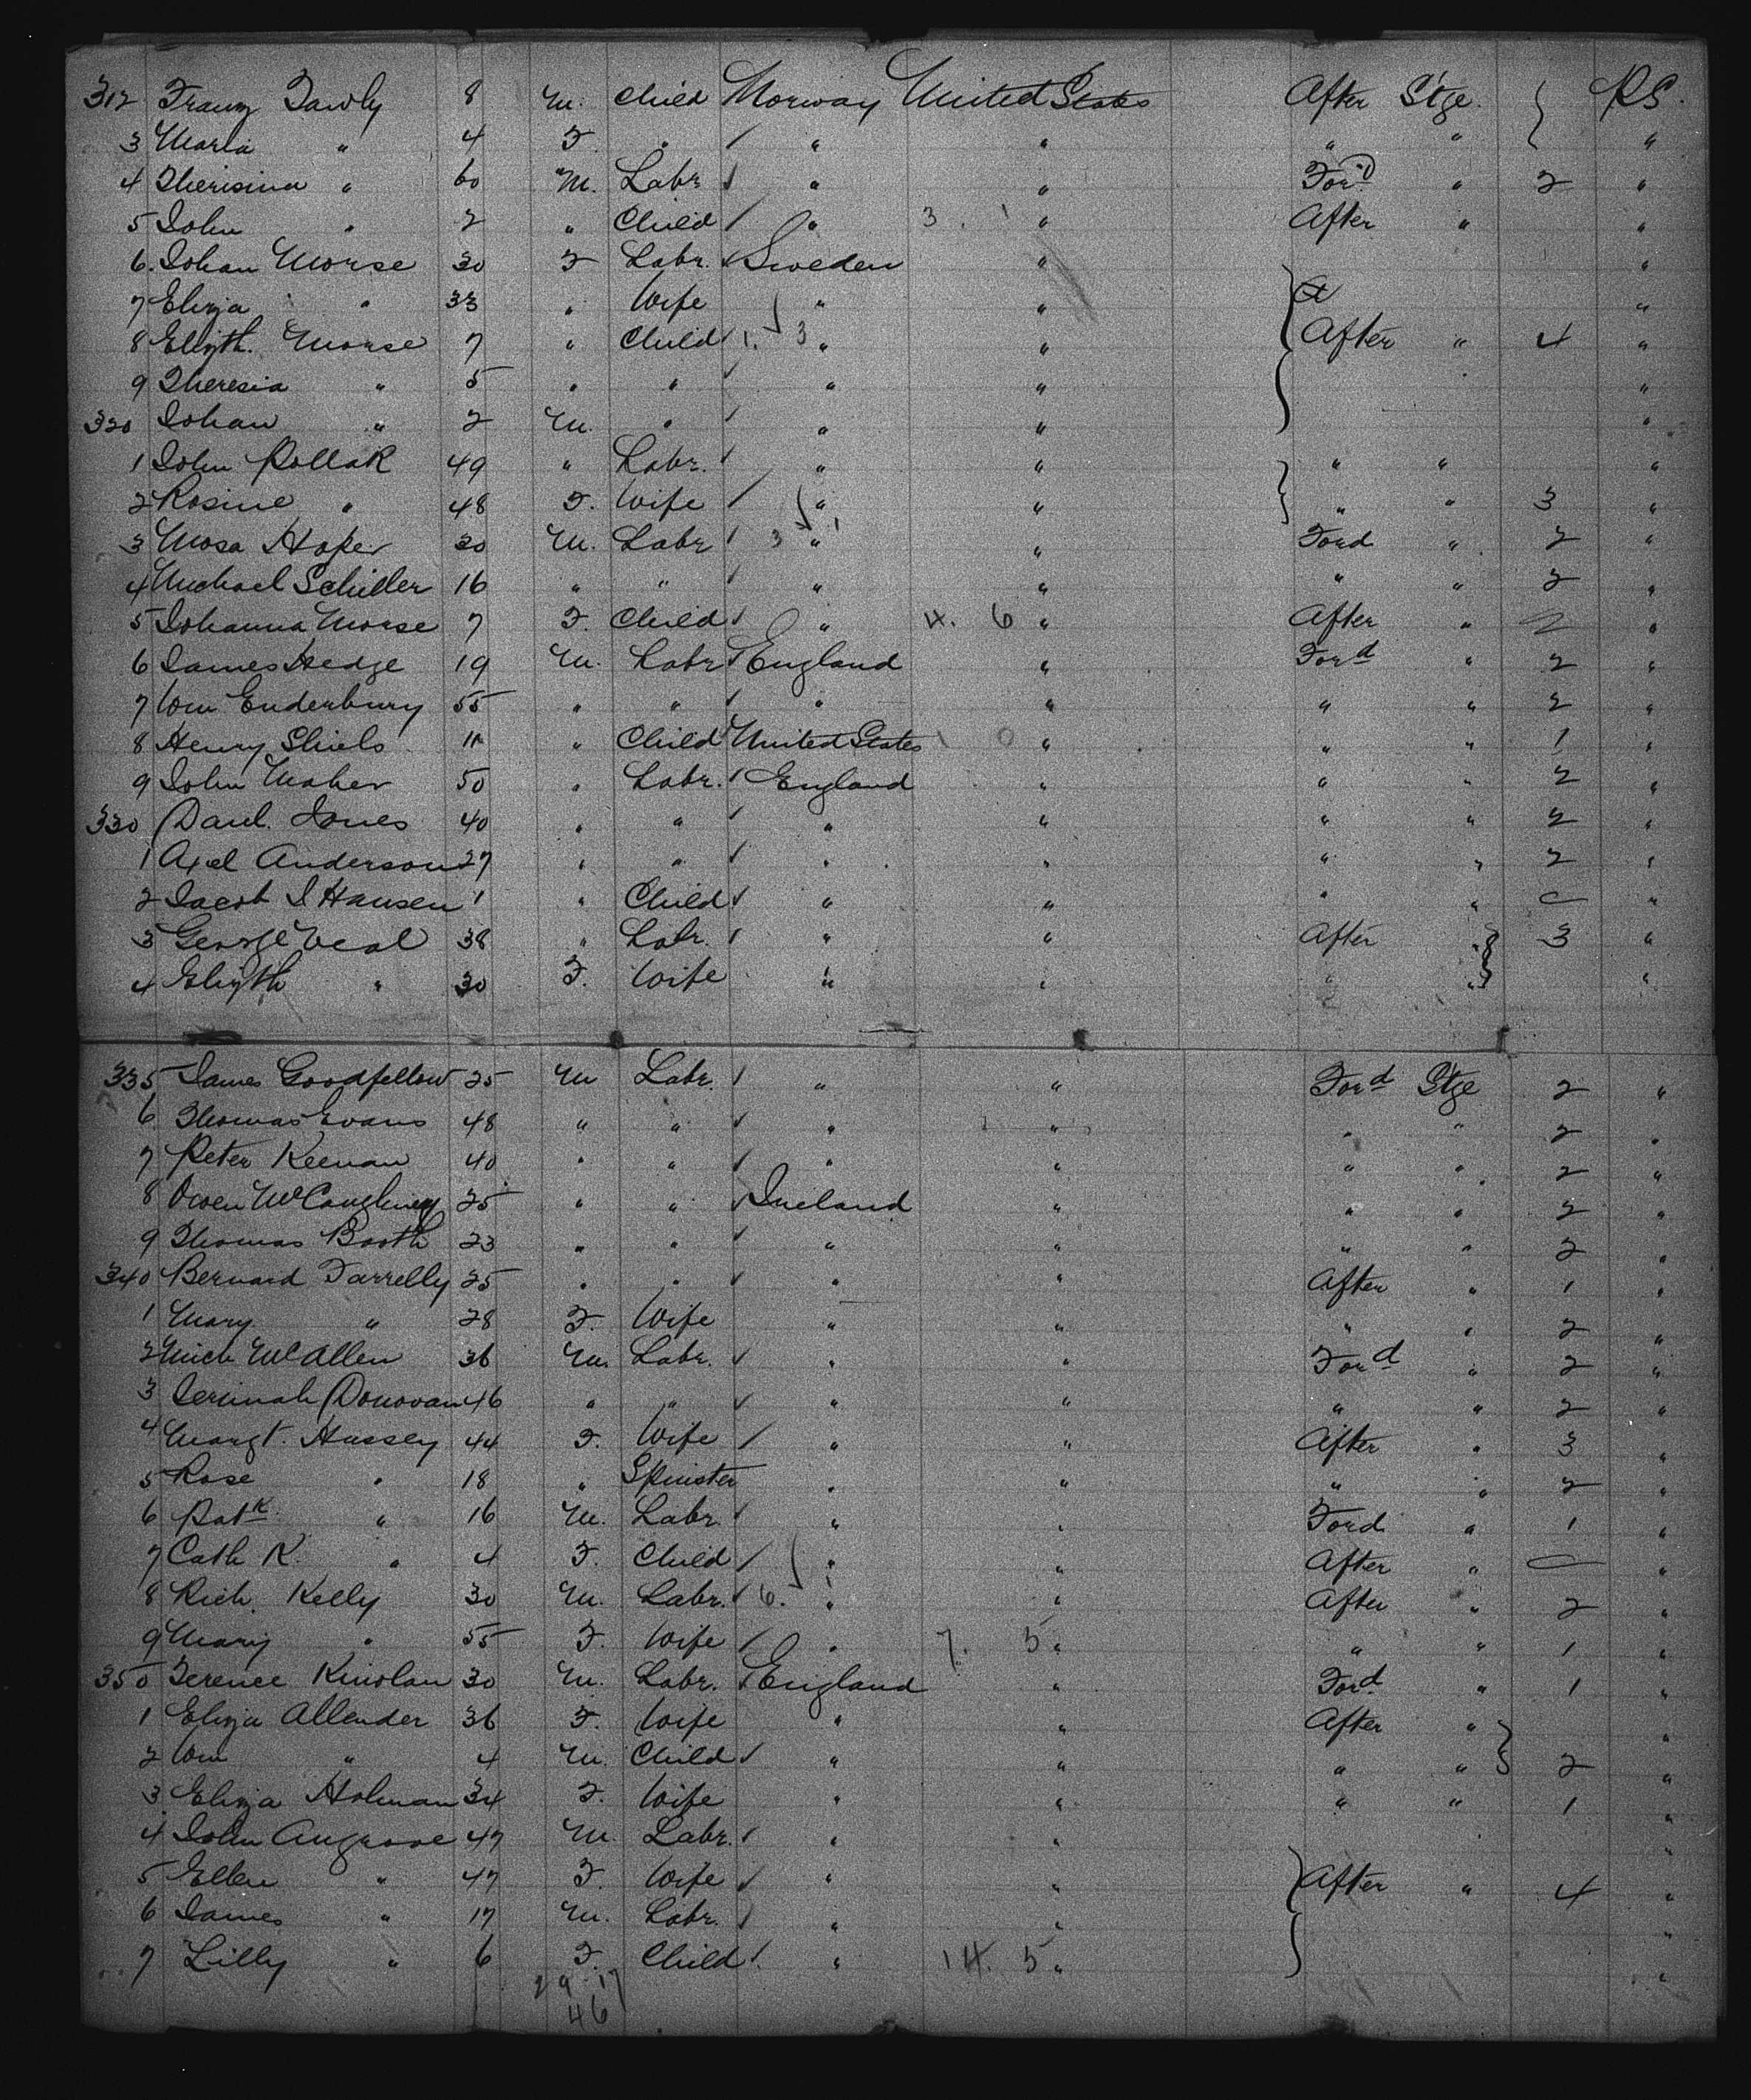 312 Franz Tawly 8 M. Child Norway United States After Stge. } P.S.
3 Maria " 4 F. " " " " " "
4 Therisina " 60 M. Labr " " For'd " 2 "
5 John " 2 " Child " 3. 1 " After " "
6. Johan Morse 30 F Labr. Sweden " "
7 Eliza " 33 " Wife " " "
8 Elizth. Morse 7 " Child 1. 3 " " After " 4 "
9 Theresia " 5 " " " " "
320 Johan " 2 M. " " " "
1 John Pollak 49 " Labr. " " " " "
2 Rosine " 48 F. Wife " " " " 3 "
3 Mosa Hoper 30 M. Labr 3 1 " " Ford " 2 "
4 Michael Schiller 16 " " " " " " 2 "
5 Johanna Morse 7 F. Child " 4. 6 " After " 2 "
6 James Hedge 19 M. Labr England " Ford " 2 "
7 Wm Enderbury 55 " " " " " " 2 "
8 Henry Shiels 11 " Child United States 1 0 " " " 1 "
9 John Maher 50 " Labr. England " " " 2 "
330 Danl. Jones 40 " " " " " " 2 "
1 Axel Anderson 27 " " " " " " 2 "
2 Jacob J Hansen 1 " Child " " " " — "
3 George Veal 38 " Labr. " " After " 3 "
4 Elizth " 30 F. Wife " " " " "
335 James Goodfellow 25 M Labr. " " Ford Stge 2 "
6 Thomas Evans 48 " " " " " " 2 "
7 Peter Keenan 40 " " " " " " 2 "
8 Owen McCaughney 25 " " Ireland " " " 2 "
9 Thomas Booth 23 " " " " " " 2 "
340 Bernard Farrelly 25 " " " " After " 1 "
1 Mary " 28 F. Wife " " " " 2 "
2 Mich McAllen 36 M. Labr. " " Ford " 2 "
3 Jerimah Donovan 46 " " " " " " 2 "
4 Margt. Hussey 44 F. Wife " " After " 3 "
5 Rose " 18 " Spinster " " " " 2 "
6 Patk " 16 M. Labr. " " Ford " 1 "
7 Cath K. " 4 F. Child " " After " — "
8 Rich. Kelly 30 M. Labr. 6. 1 " " After " 2 "
9 Mary " 55 F. Wife " 7. 5 " " " 1 "
350 Terence Kinolan 30 M. Labr. England " Ford " 1 "
1 Eliza Allender 36 F. Wife " " After " "
2 Wm " 4 M. Child " " " " 2 "
3 Eliza Holman 34 F. Wife " " " " 1 "
4 John Angrove 47 M. Labr. " " "
5 Ellen " 47 F. Wife " " After " 4 "
6 James " 17 M. Labr. " " "
7 Lilly " 6 F. Child " 14. 5 " "
29 17
46